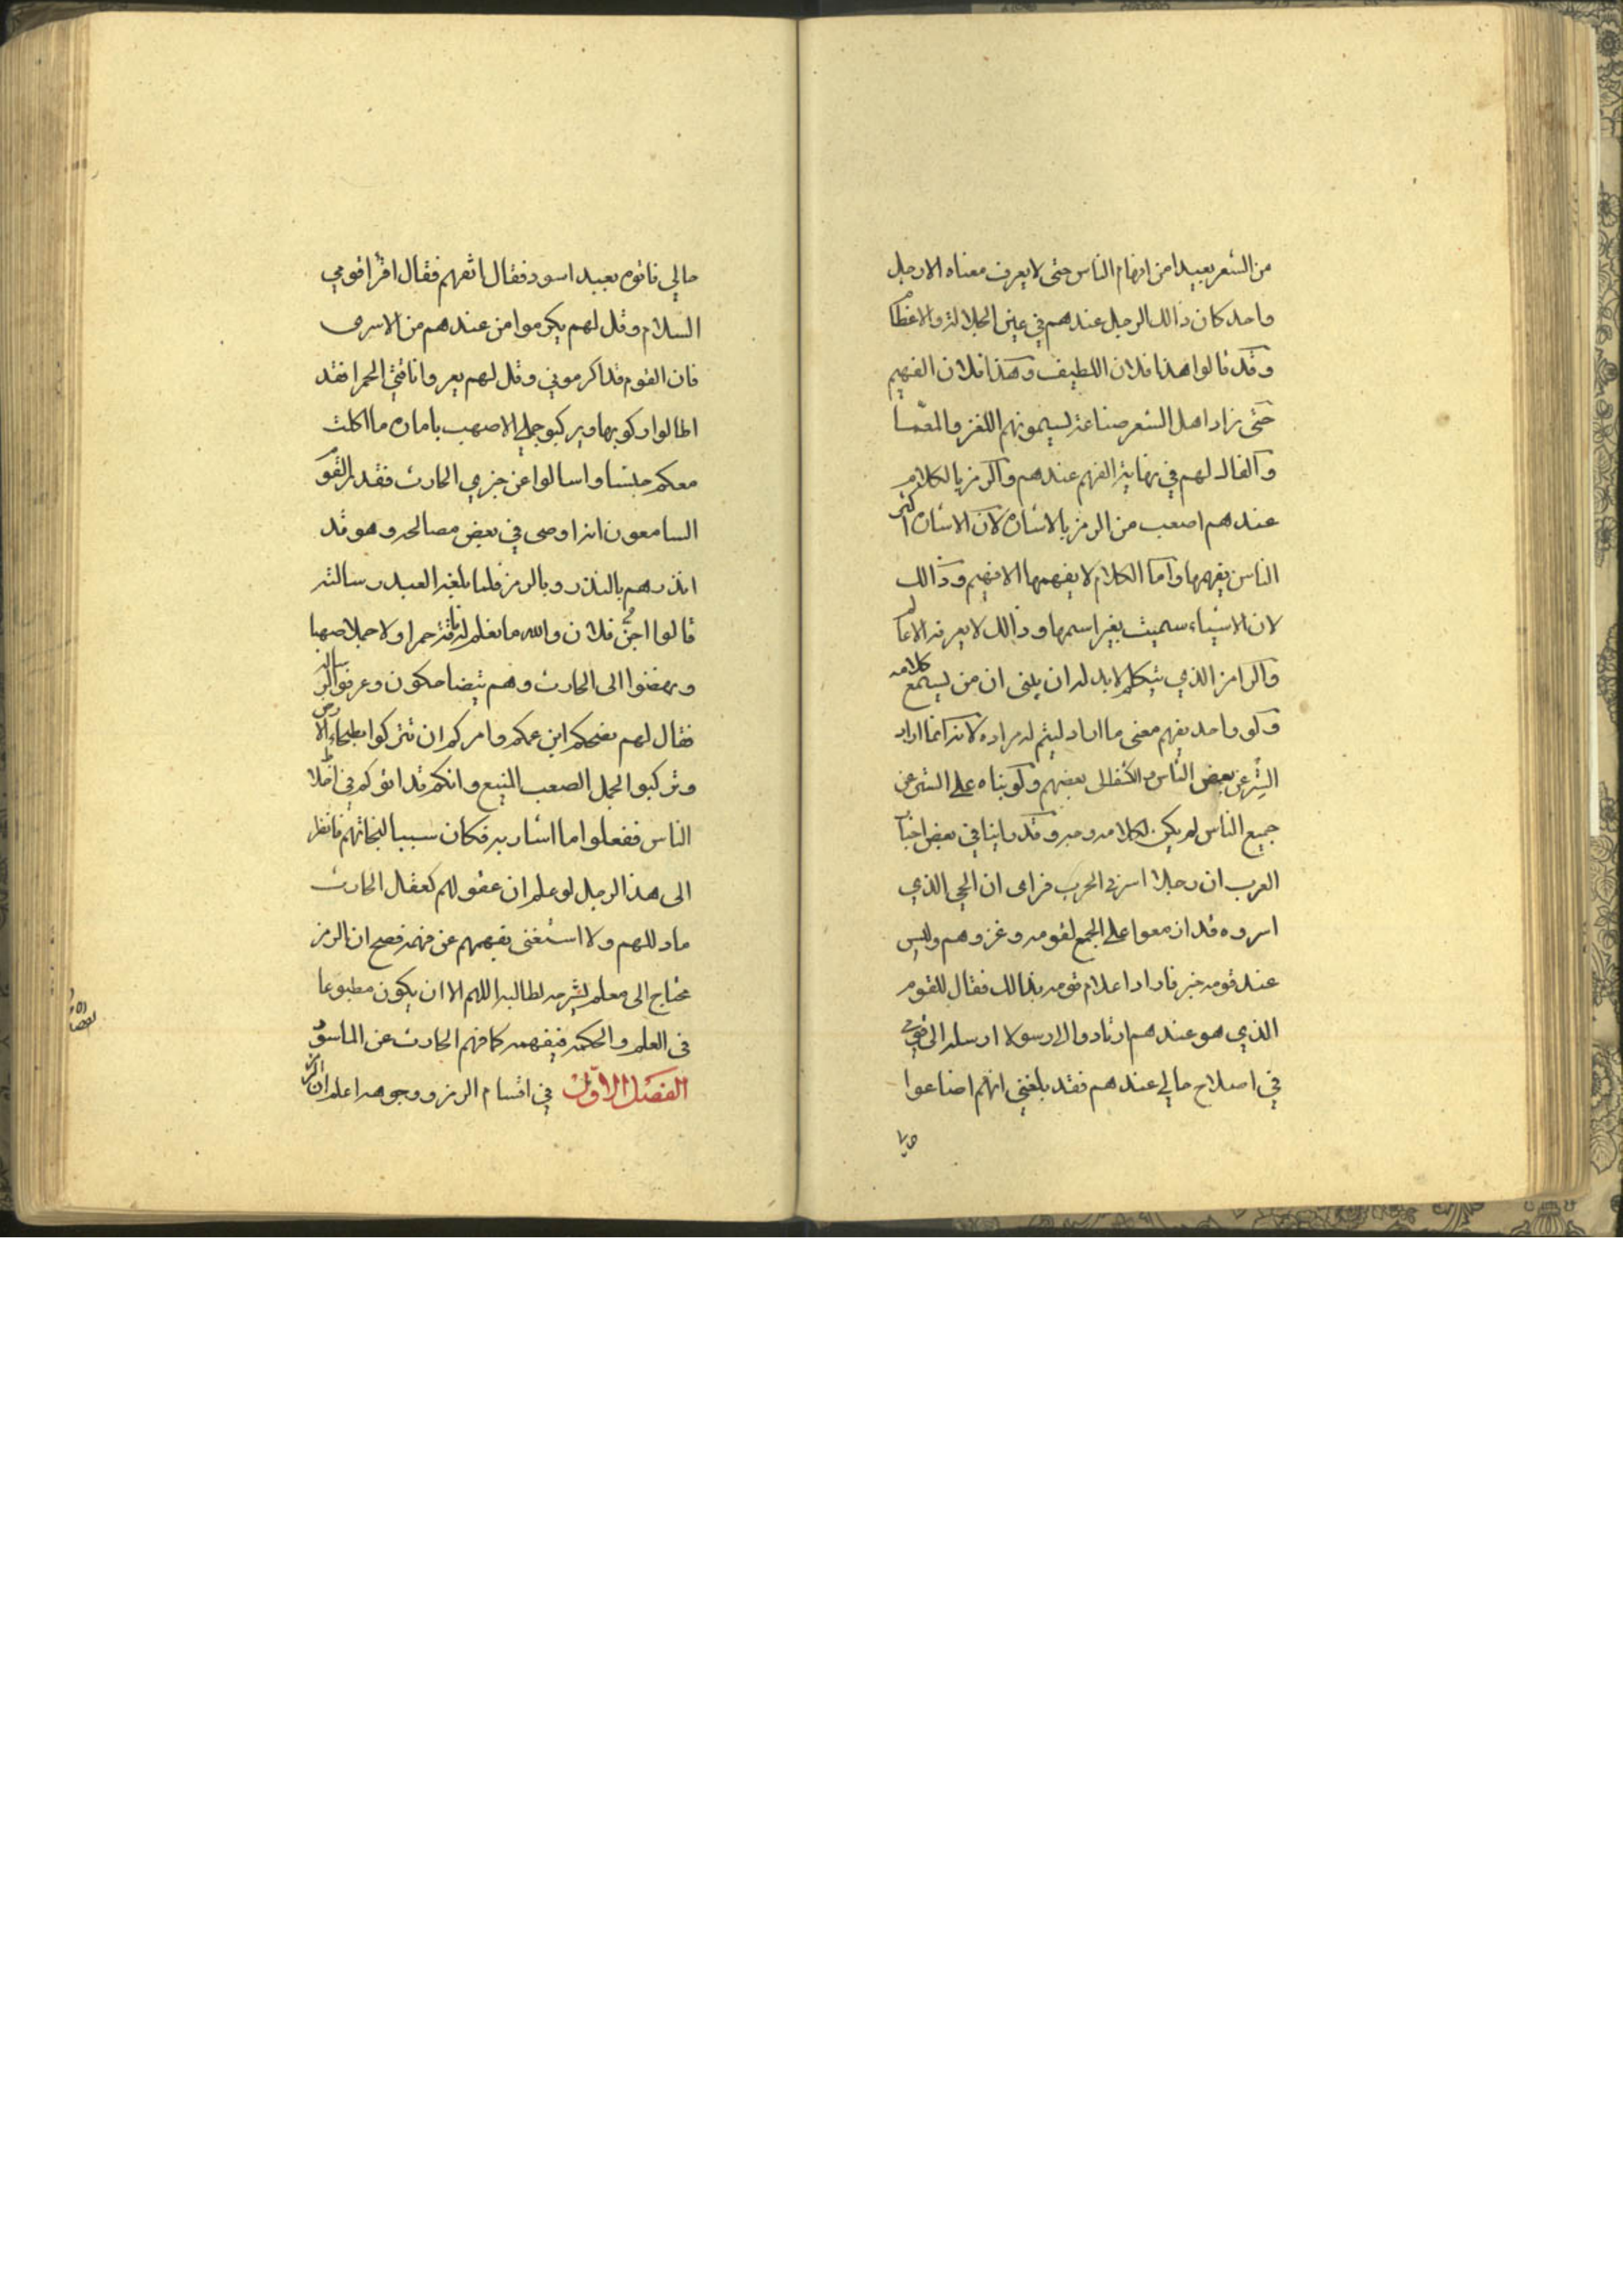 من الشعر بعيدا من افهام الناس حتى لا يعرف معناه الا رجل
واحد كان ذالك الرجل عندهم في عين الجلالة والاعظام
وقد قالوا هذا فلان اللطيف وهذا فلان الفهيم
حتى زاد اهل الشعر صناعة ليسمونهم اللغز والمعما
والفال لهم في نهاية الفهم عندهم والرمز بالكلام
عندهم اصعب من الرمز بالاشاره لان الاشاره اكثر
الناس يفهمها واما الكلام لا يفهمها الا فهيم وذالك
لان الاشياء سميت بغير اسمها وذالك لا يعرفه الا عالم
والرامز الذي يتكلم لا بد له ان يبنى ان من يسمع كلامه
ولو واحد يفهم معنى ما اراد ليتم له مراده لانه انما اراد
الستر عن بعض الناس والكشف الى بعضهم ولو بناه على الستر عن
جميع الناس لم يكن لكلامه وجه وقد راينا في بعض اخبار
العرب ان رجلا اسر في الحرب فراى ان الحي الذي
اسروه قد ازمعوا على الجمع لقومه وغزوهم وليس
عند قومه خبر فاراد اعلام قومه بذالك فقال للقوم
الذي هو عندهم ارتادوا لي رسولا ارسله الى قومي
في اصلاح مالي عندهم فقد بلغني انهم اضاعوا
مالي فاتوه بعبد اسود فقال اتفهم فقال اقرا قومي
السلام وقل لهم يكرموا من عندهم من الاسرى
فان القوم قد اكرموني وقل لهم يعروا ناقتي الحمرا فقد
اطالوا ركوبها ويركبو جملي الاصهب بامارة ما اكلت
معكم حيسا واسالوا عن خبري الحارث فقد القوم
السامعون انه اوصى في بعض مصالحه وهو قد
انذرهم بالنذر وبالرمز فلما بلغه العبد رسالته
قالوا اجن فلان والله ما نعلم له ناقة حمرا ولا جملا صهبا
ونهضوا الى الحارث وهم يتضاحكون وعرفوا الرسالة
فقال لهم نصحكم ابن عمكم وامركم ان تتركوا بطحاء الارض
وتركبوا الجمل الصعب المنيع وانكم قد اتوكم في اخلاط
الناس ففعلوا ما اشار به فكان سببا لنجاتهم فانظر
الى هذا الرجل لو علم ان عقولهم كعقل الحارث
ما دلهم ولا استغنى بفهمهم عن فهمه فصح ان الرمز
محتاج الى معلم يشرحه لطالبه اللهم الا ان يكون مطبوعا
في العلم والحكمة فيفهمه كما فهم الحارث عن الماسور
الفصل الاول في اقسام الرمز ووجوهه اعلم ان الرمز